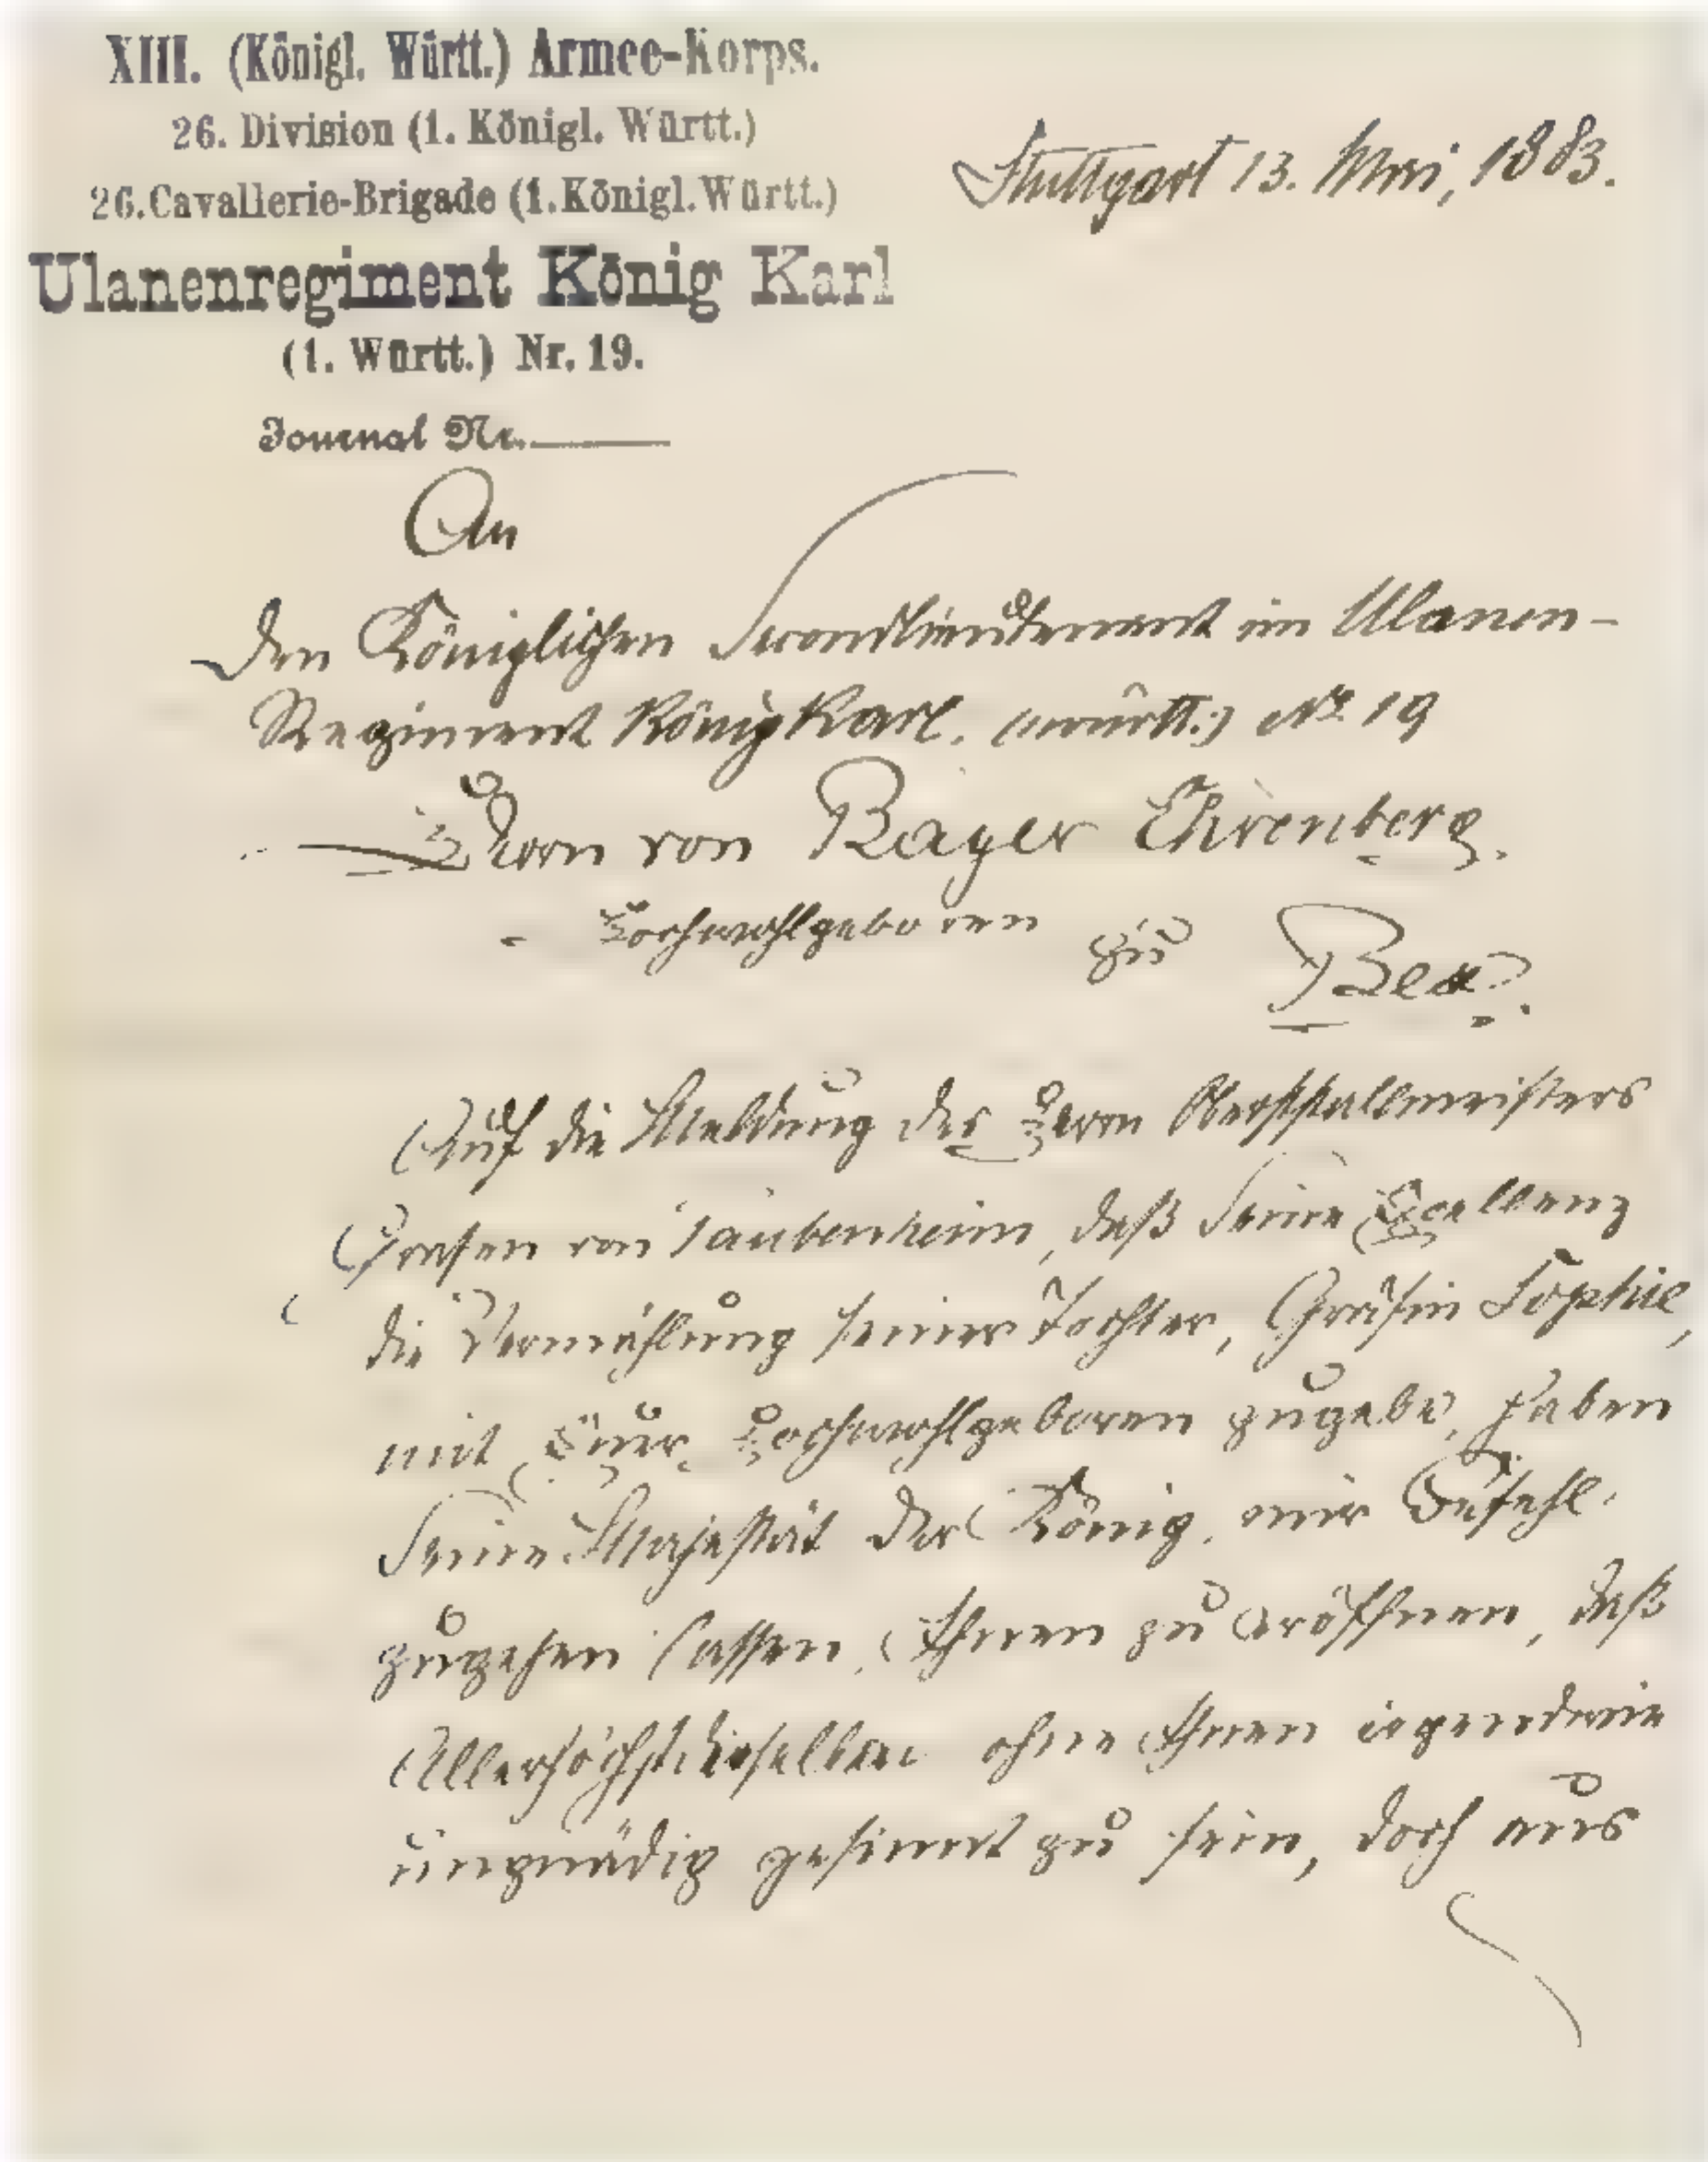 XIII. (Königl. Württ.) Armee-Korps.
26. Division (1. Königl. Württ.)
26. Cavallerie-Brigade (1. Königl. Württ.)
Ulanenregiment König Karl
(1. Württ.) Nr. 19.
Journal Nr.
Stuttgart 13. Mai, 1883.
An
den Königlichen Secondlieutenant im Ulanen-
Regiment König Karl. (württ.) No 19
Herrn von Bayer Ehrenberg.
Hochwohlgeboren zu Bex.
Auf die Meldung des Herrn Oberststallmeisters
Grafen von Taubenheim, daß Seine Excellenz
die Vermählung seiner Tochter, Gräfin Sophie,
mit Euer Hochwohlgeboren zugebe, haben
Seine Majestät der König, mir Befehl
zugehen lassen, Ihnen zu eröffnen, daß
Allerhöchstdieselben ohne Ihnen irgendwie
ungnädig gesinnt zu sein, doch aus